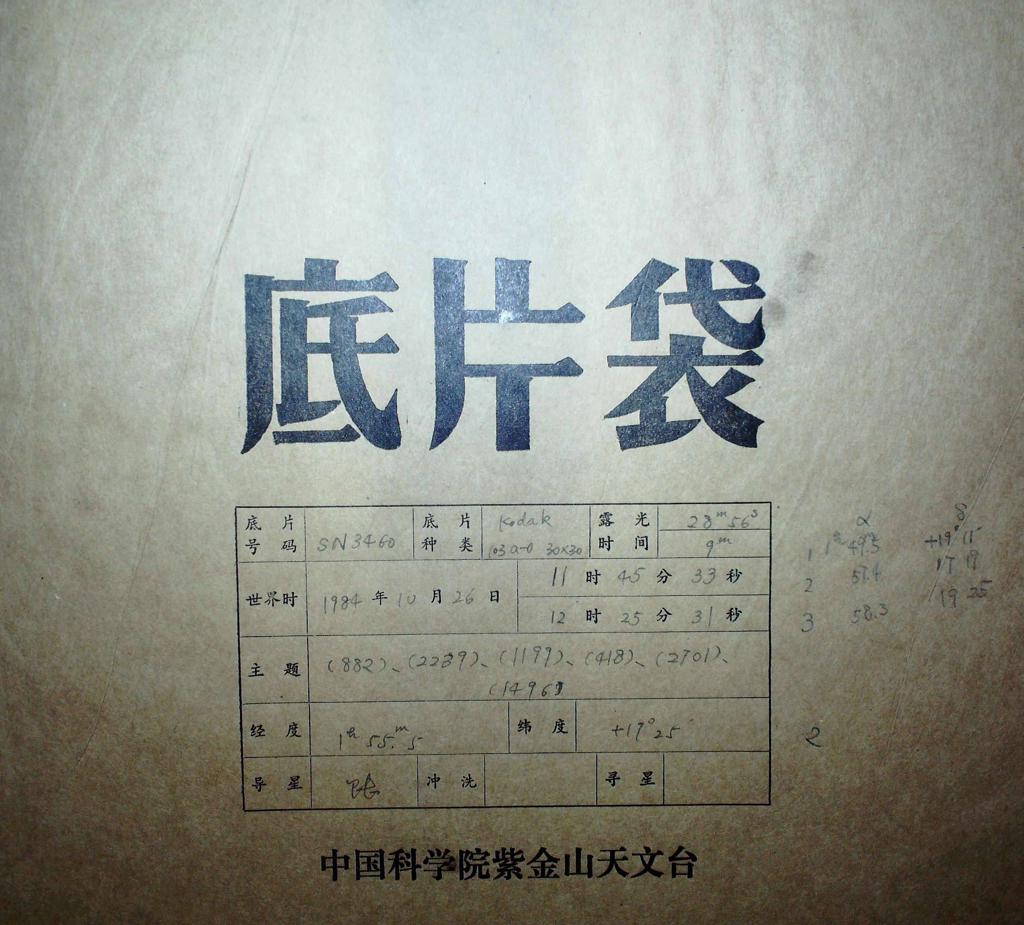 底片袋
底片号码 SN3460 底片种类 Kodak 103a-0 30×30 露光时间 28ᵐ56ˢ 9ᵐ
世界时 1984年10月26日 11时45分33秒
12时25分31秒
主题 (882)、(2239)、(1199)、(418)、(2701)、
(1496)
经度 1ʰ55ᵐ.5 纬度 +19°25′
导星 冲洗 寻星
中国科学院紫金山天文台
α δ
1 1ʰ49ᵐ.5 +19°11′
2 51.4 17 19
3 58.3 19 25
2